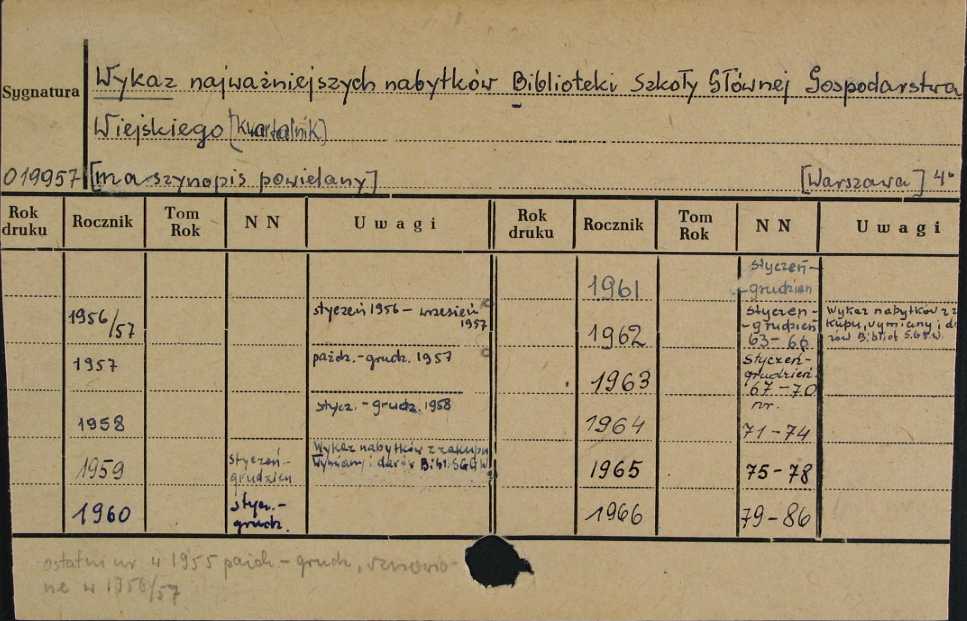 Sygnatura
Wykaz najważniejszych nabytków Biblioteki Szkoły Głównej Gospodarstwa
Wiejskiego [kwartalnik]
019957 [maszynopis powielany] [Warszawa] 4°
Rok druku Rocznik Tom Rok NN Uwagi Rok druku Rocznik Tom Rok NN Uwagi
1956/57 styczeń 1956 – wrzesień 1957
1957 paźdz.-grudz. 1957
1958 stycz.-grudz. 1958
1959 styczeń-grudzień Wykaz nabytków z zakupu wymiany i darów Bibl. SGGW
1960 stycz.-grudz.
1961 styczeń-grudzień
1962 styczeń-grudzień 63-66 Wykaz nabytków z zakupu, wymiany i darów Bibliot. SGGW.
1963 styczeń-grudzień 67-70
1964 nr. 71-74
1965 75-78
1966 79-86
ostatni nr w 1955 paźdz.-grudz., wznowio-
ne w 1956/57